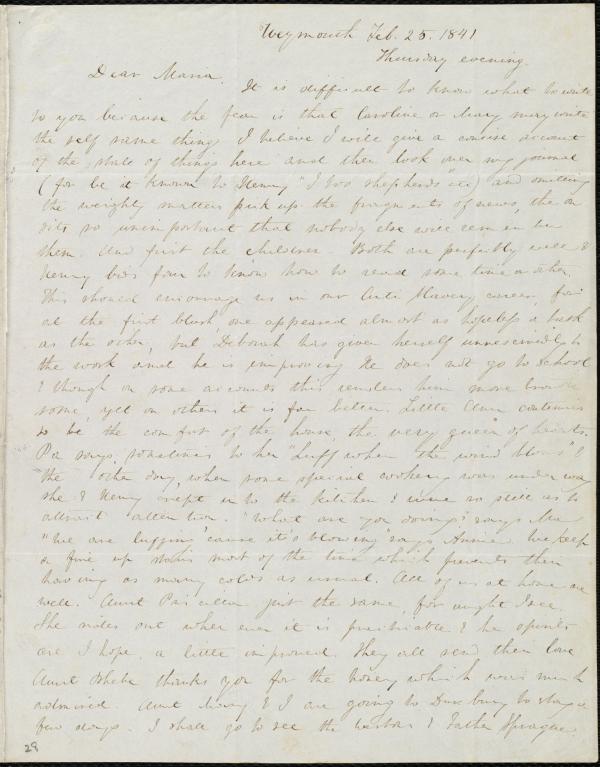 Weymouth Feb. 25. 1841
Thursday evening.
Dear Maria,
It is difficult to know what to write
to you because the fear is that Caroline or Mary may write
the self same things. I believe I will give a concise account
of the state of things here and then look over my journal
(for be it known to Henry "I too shepherds" &c) and omitting
the weighty matters pick up the fragments of news, the on
dits so unimportant that nobody else will
them. And first the children. Both are perfectly well &
Henry bids fair to know how to read some time or other.
This should encourage us in our Anti Slavery career, for
at the first blush, one appeared almost as hopeless a task
as the other, but Deborah has given herself unceasingly to
the work and he is improving. He does not go to school
& though on some accounts this renders him more trouble
some, yet on others it is far better. Little Ann continues
to be the comfort of the house, the very queen of hearts.
Pa says sometimes to her "Luff when the wind blows" &
the other day, when some special cookery was under way
she & Henry crept in to the kitchen & were so still as to
attract attention. "What are you doing" says Ma
"We are luffing 'cause it's blowing" says Annie. We keep
a fire up stairs most of the time which prevents their
having as many colds as usual. All of us at home are
well. Aunt Priscilla just the same, for aught I see.
She rides out when ever it is practicable & her spirits
are I hope, a little improved. They all send their love
Aunt Phebe thanks you for the honey which was much
admired. Aunt Mary & I are going to Duxbury to stay a
few days. I shall go to see the & Father Sprague
29